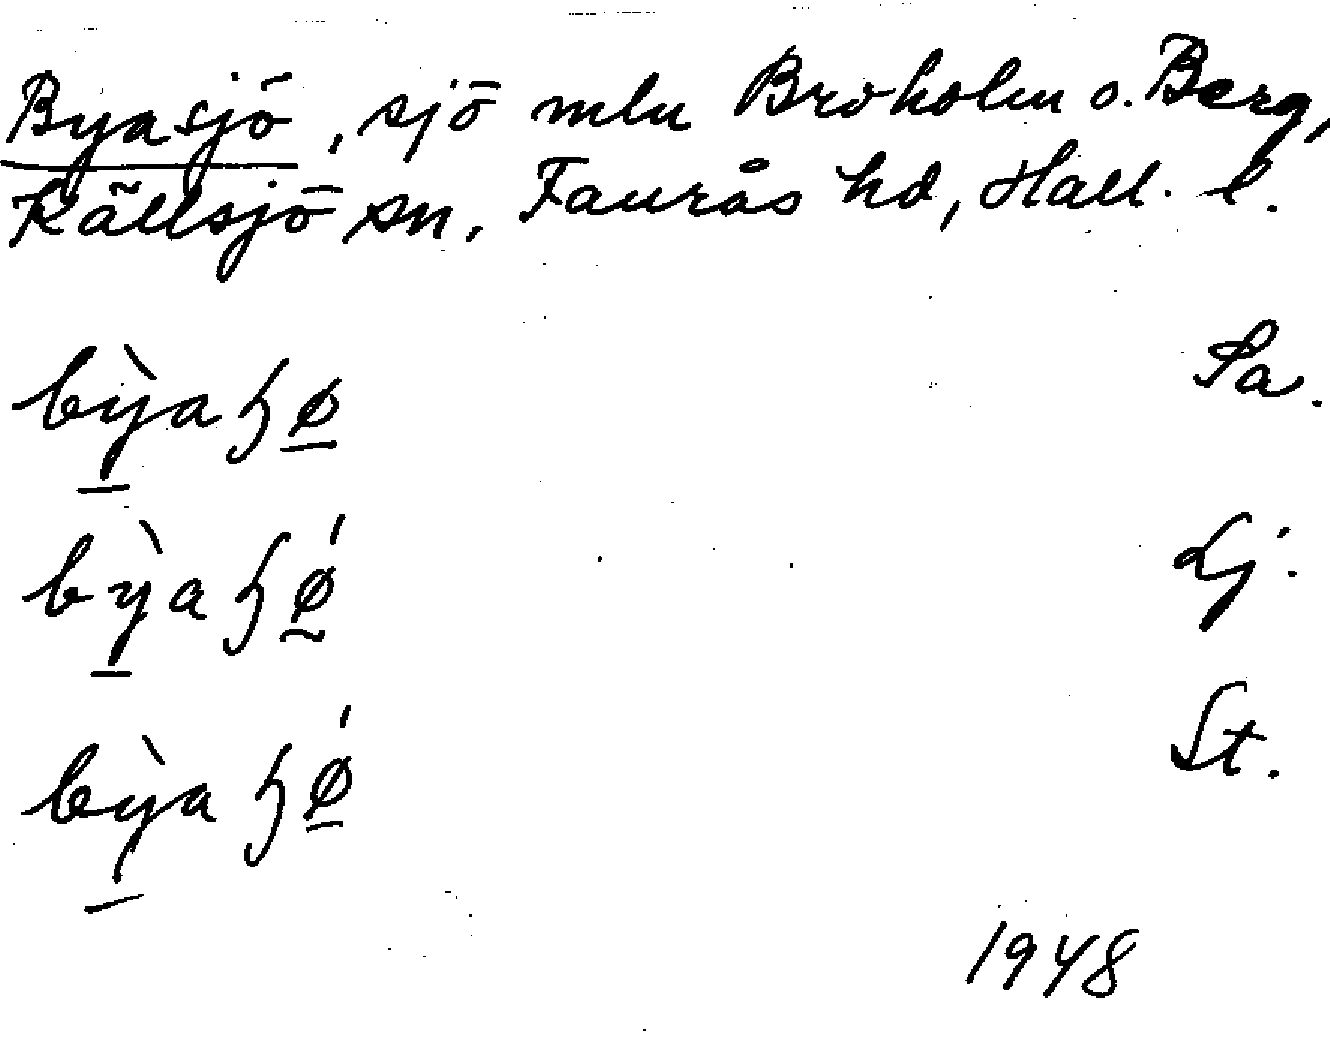 Byasjö, sjö mln Broholm o. Berg,
Källsjö sn, Faurås hd, Hall. l.
bỳaɧø Sa.
bỳaɧǿ Lj.
bỳaɧǿ St.
1948